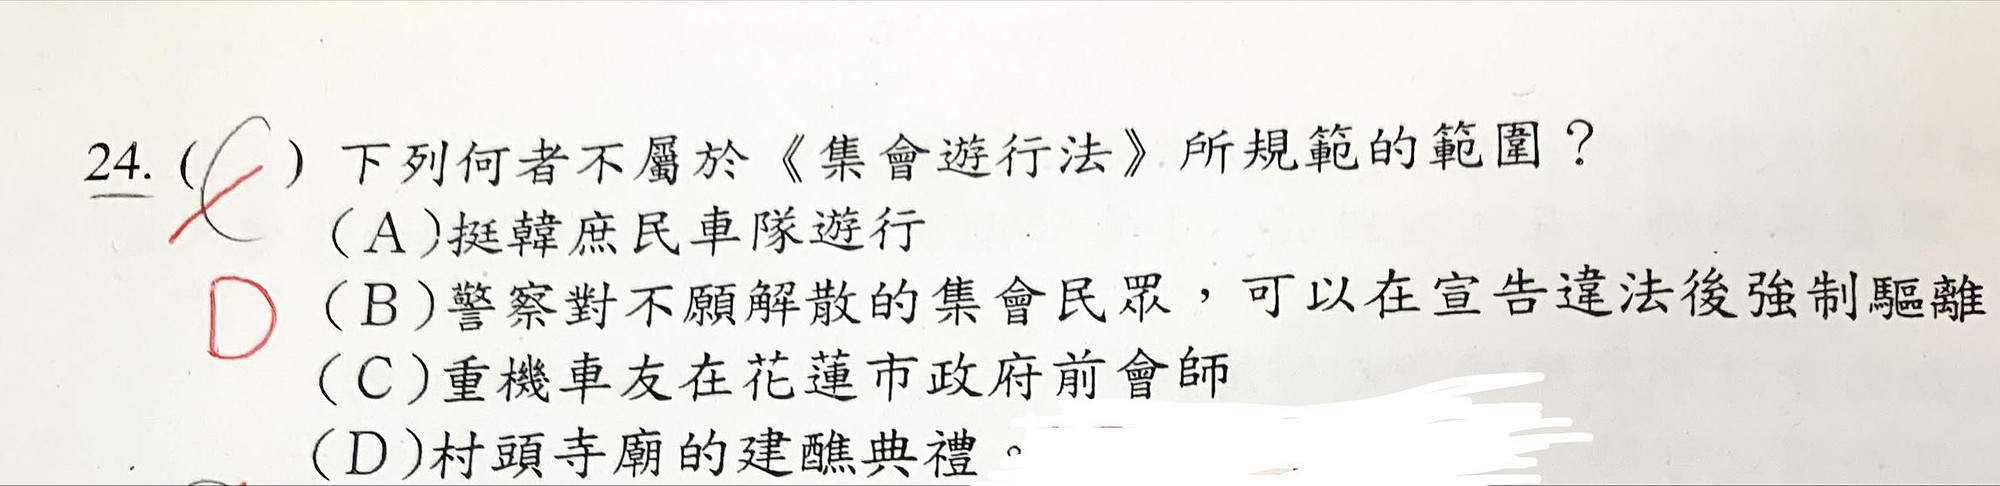 24. (C) 下列何者不屬於《集會遊行法》所規範的範圍？
(A)挺韓庶民車隊遊行
D
(B)警察對不願解散的集會民眾，可以在宣告違法後強制驅離
(C)重機車友在花蓮市政府前會師
(D)村頭寺廟的建醮典禮。